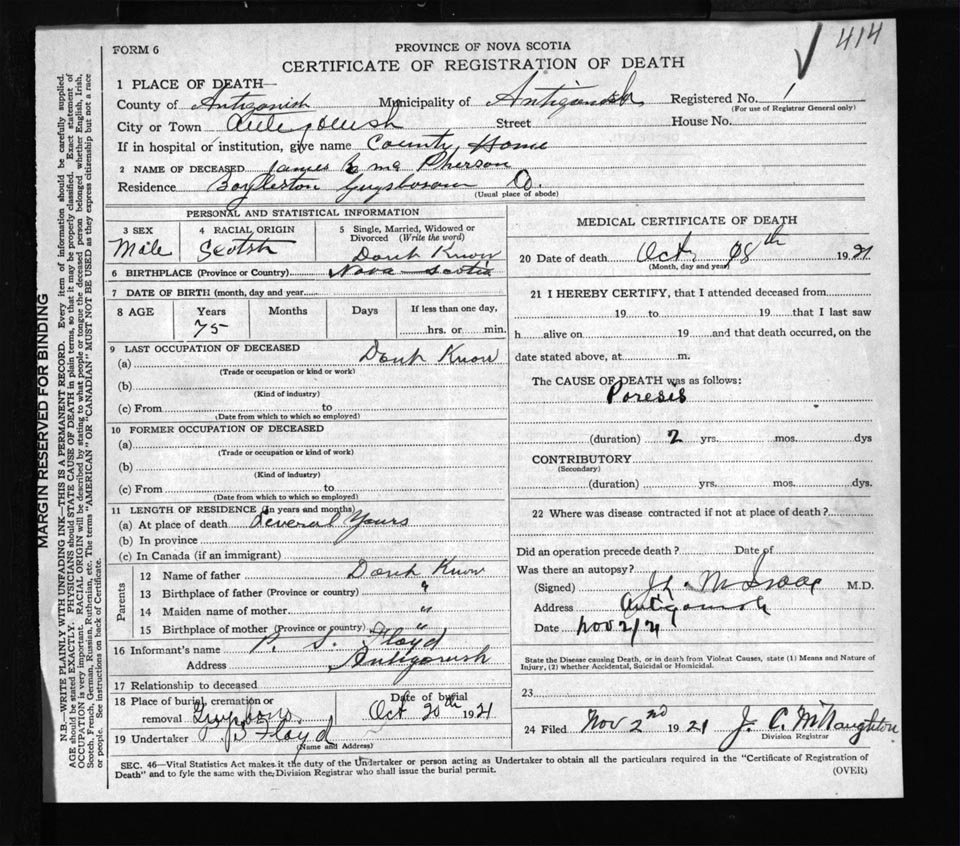 414
FORM 6
PROVINCE OF NOVA SCOTIA
CERTIFICATE OF REGISTRATION OF DEATH
1 PLACE OF DEATH—
County of Antigonish Municipality of Antigonish Registered No. 1
(For use of Registrar General only)
City or Town Antigonish Street House No.
If in hospital or institution, give name County Home
2 NAME OF DECEASED James Mc Pherson
Residence Guysborough Co.
(Usual place of abode)
PERSONAL AND STATISTICAL INFORMATION
3 SEX Male
4 RACIAL ORIGIN Scotch
5 Single, Married, Widowed or Divorced (Write the word) Dont Know
6 BIRTHPLACE (Province or Country) Nova Scotia
7 DATE OF BIRTH (month, day and year
8 AGE Years Months Days If less than one day,
75 hrs. or min.
9 LAST OCCUPATION OF DECEASED
(a) Dont Know
(Trade or occupation or kind or work)
(b)
(Kind of industry)
(c) From to
(Date from which to which so employed)
10 FORMER OCCUPATION OF DECEASED
(a)
(Trade or occupation or kind of work)
(b)
(Kind of industry)
(c) From to
(Date from which to which so employed)
11 LENGTH OF RESIDENCE (In years and months)
(a) At place of death Several Years
(b) In province
(c) In Canada (if an immigrant)
Parents
12 Name of father Dont Know
13 Birthplace of father (Province or country) "
14 Maiden name of mother "
15 Birthplace of mother (Province or country) "
16 Informant's name P. S. Floyd
Address Antigonish
17 Relationship to deceased
18 Place of burial, cremation or removal Date of burial
Oct 20th 1921
19 Undertaker Floyd
(Name and Address)
MEDICAL CERTIFICATE OF DEATH
20 Date of death Oct 18th 1921
(Month, day and year)
21 I HEREBY CERTIFY, that I attended deceased from
19 to 19 that I last saw
h alive on 19 and that death occurred, on the
date stated above, at m.
The CAUSE OF DEATH was as follows:
Paresis
(duration) 2 yrs. mos. dys
CONTRIBUTORY
(Secondary)
(duration) yrs. mos. dys.
22 Where was disease contracted if not at place of death?
Did an operation precede death? Date of
Was there an autopsy?
(Signed) M.D.
Address Antigonish
Date Nov 2/21
State the Disease causing Death, or in death from Violent Causes, state (1) Means and Nature of
Injury, (2) whether Accidental, Suicidal or Homicidal.
23
24 Filed Nov 2nd 1921 J. C. McNaughton
Division Registrar
SEC. 46—Vital Statistics Act makes it the duty of the Undertaker or person acting as Undertaker to obtain all the particulars required in the "Certificate of Registration of
Death" and to fyle the same with the Division Registrar who shall issue the burial permit.
(OVER)
MARGIN RESERVED FOR BINDING
N.B.—WRITE PLAINLY WITH UNFADING INK—THIS IS A PERMANENT RECORD. Every item of information should be carefully supplied.
AGE should be stated EXACTLY. PHYSICIANS should STATE CAUSE OF DEATH in plain terms, so that it may be properly classified. Exact statement of
OCCUPATION is very important. RACIAL ORIGIN will be described by stating to what people or tongue the deceased person belonged whether English, Irish,
Scotch, French, German, Russian, Ruthenian, etc. The terms "AMERICAN" OR "CANADIAN" MUST NOT BE USED as they express citizenship but not a race
or people. See instructions on back of Certificate.